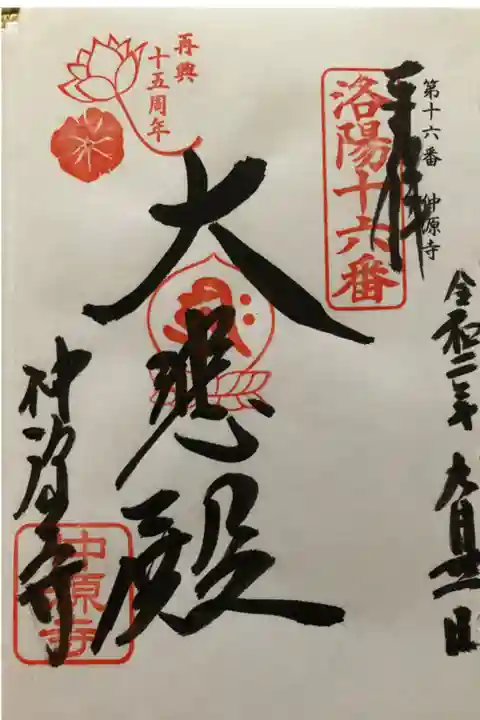 第十六番 仲源寺
奉拝
洛陽十六番
令和二年 六月 日
再興
十五周年
大悲殿
仲源寺
仲源寺